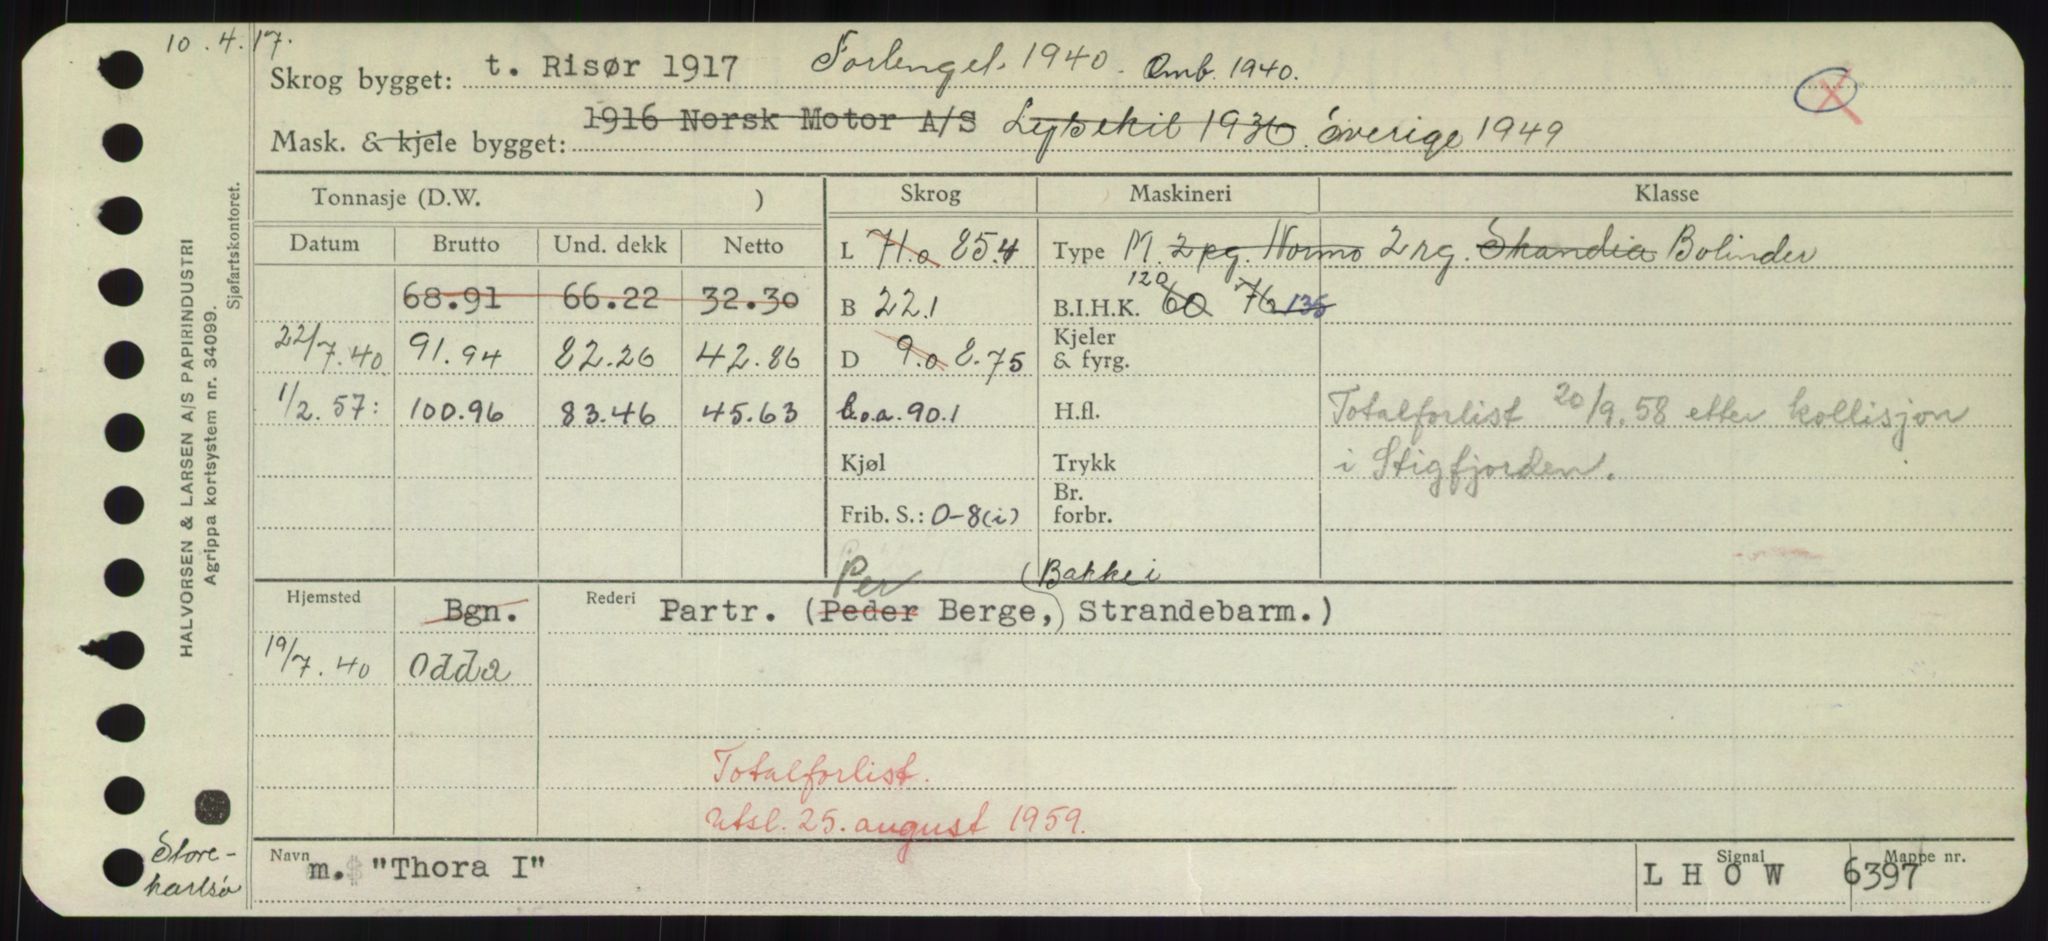 10.4.17.
Skrog bygget: t. Risør 1917 Forlenget 1940. Omb. 1940.
Mask. & kjele bygget: 1916 Norsk Motor A/S Lysekil 1936. Sverige 1949
HALVORSEN & LARSEN A/S PAPIRINDUSTRI
Agrippa kortsystem nr. 34099.
Sjøfartskontoret.
Tonnasje (D.W. ) Skrog Maskineri Klasse
Datum Brutto Und. dekk Netto L 71.0 85.4 Type M. 2 rg. Normo 2 rg. Skandia Bolinder
68.91 66.22 32.30 B 22.1 B.I.H.K. 120 60 76 135
22/7.40 91.94 82.26 42.86 D 9.0 8.75 Kjeler & fyrg.
1/2.57: 100.96 83.46 45.63 L.o.a. 90.1 H.fl. Totalforlist 20/9.58 etter kollisjon
Kjøl Trykk i Stigfjorden.
Frib. S.: 0-8(i) Br. forbr.
Per (Bakke i
Hjemsted Bgn. Rederi Partr. (Peder Berge,) Strandebarm.)
19/7.40 Odda
Totalforlist.
Utsl. 25. august 1959.
Store-
karlsø
Navn m. "Thora I" Signal L H O W Mappe nr. 6397